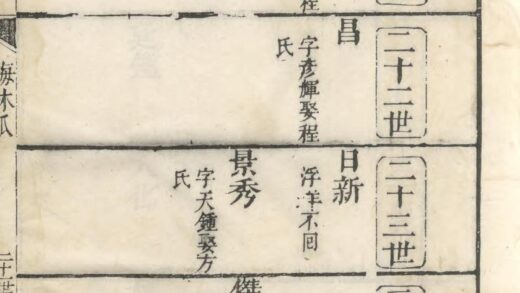 程
二十二世
昌
字彥輝娶程
氏
二十三世
日新
浮梁不回
景秀
字天鍾娶方
氏
傑
海木瓜